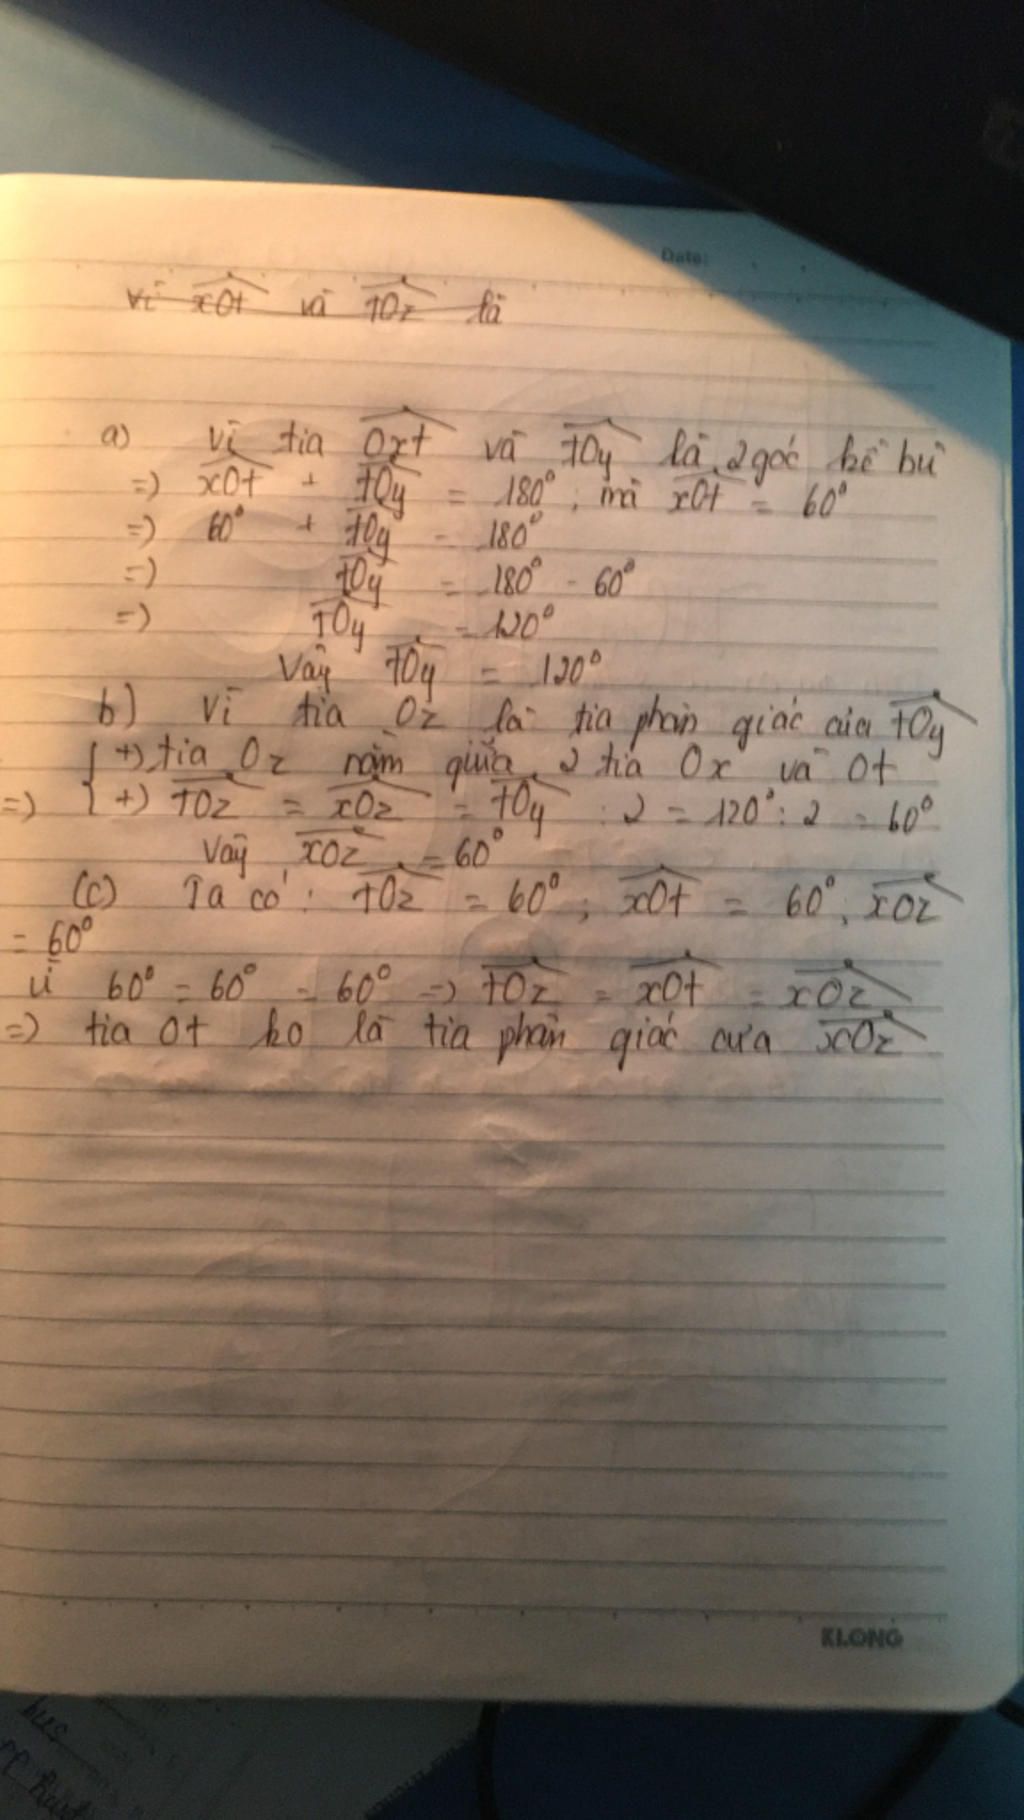 Date:
vì xOt và tOz là
a) vì tia Oxt và tOy là 2 góc kề bù
=) xOt + tOy = 180° ; mà xOt = 60°
=) 60° + tOy = 180°
=) tOy = 180° - 60°
=) tOy = 120°
Vậy tOy = 120°
b) Vì tia Oz là tia phân giác của tOy
+) tia Oz nằm giữa 2 tia Ox và Ot
=) +) tOz = xOz = tOy : 2 = 120° : 2 = 60°
Vậy xOz = 60°
(c) Ta có : tOz = 60° ; xOt = 60° ; xOz
= 60°
vì 60° = 60° = 60° =) tOz = xOt = xOz
=) tia Ot ko là tia phân giác của xOz
KLONG